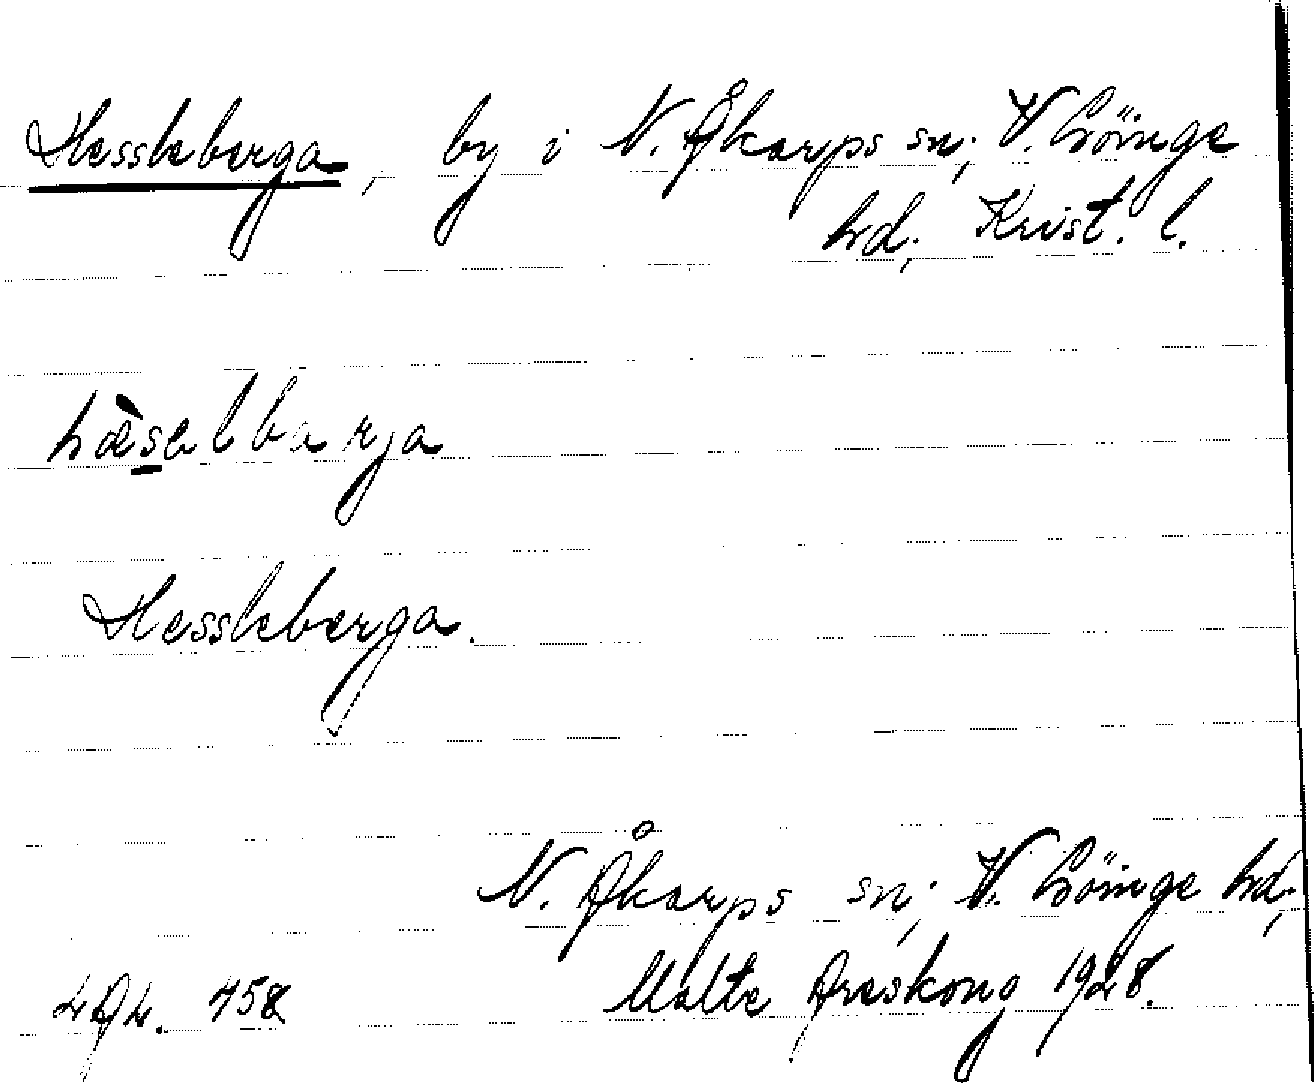 Hessleberga, by i N. Åkarps sn; V. Göinge
hd; Krist. l.
hæ̀selbarja
Hessleberga.
N. Åkarps sn; V. Göinge hd;
Malte Areskoug 1928.
458